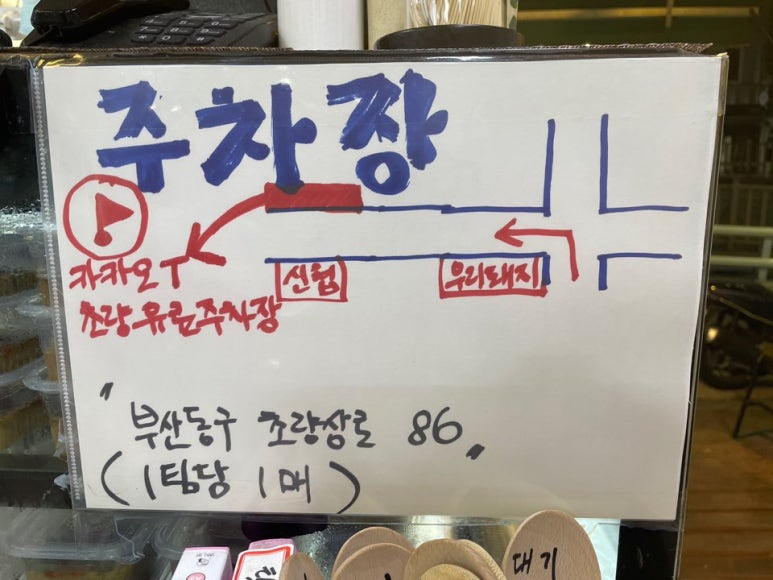 주차장
카카오T
초량유료주차장
신협
우리돼지
"부산동구 초량상로 86"
(1팀당 1매)
대기